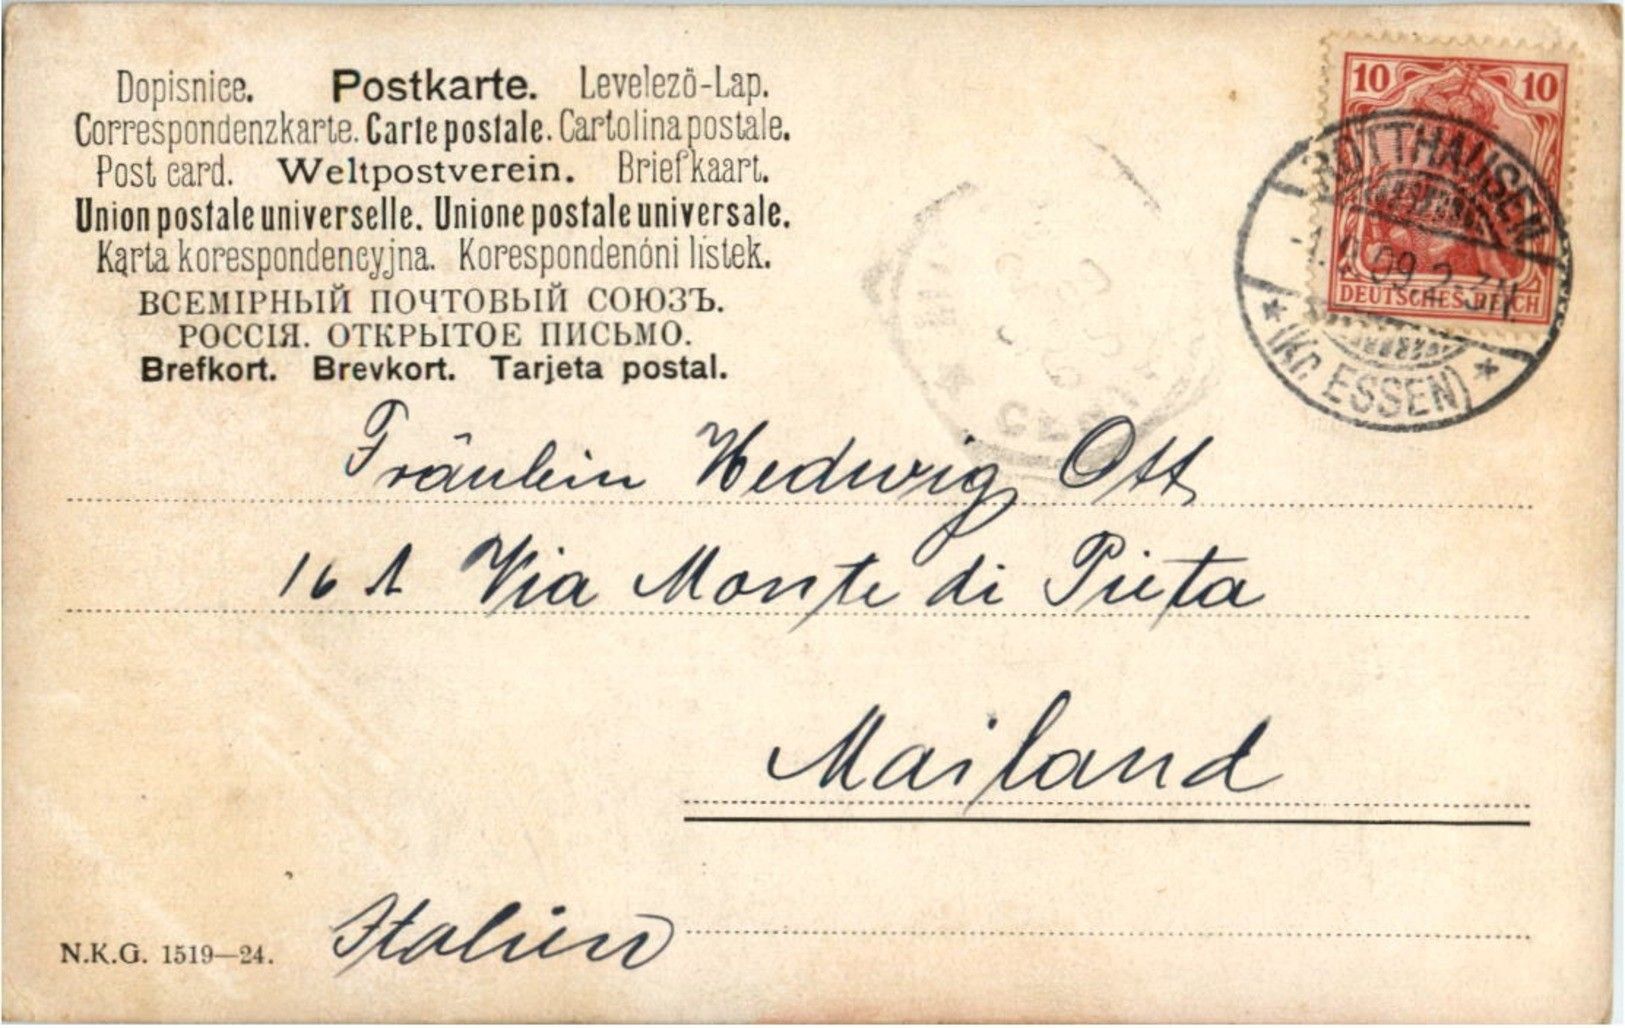 Dopisnice. Postkarte. Levelező-Lap.
Correspondenzkarte. Carte postale. Cartolina postale.
Post card. Weltpostverein. Briefkaart.
Union postale universelle. Unione postale universale.
Karta korespondencyjna. Korespondenóni listek.
ВСЕМІРНЫЙ ПОЧТОВЫЙ СОЮЗЪ.
РОССІЯ. ОТКРЫТОЕ ПИСЬМО.
Brefkort. Brevkort. Tarjeta postal.
10 10
DEUTSCHES REICH
ROTTHAUSEN
09.2-3N.
* (Kr. ESSEN) *
Fräulein Hedwig Ott
16 A Via Monte di Pieta
Mailand
Italien
N.K.G. 1519—24.